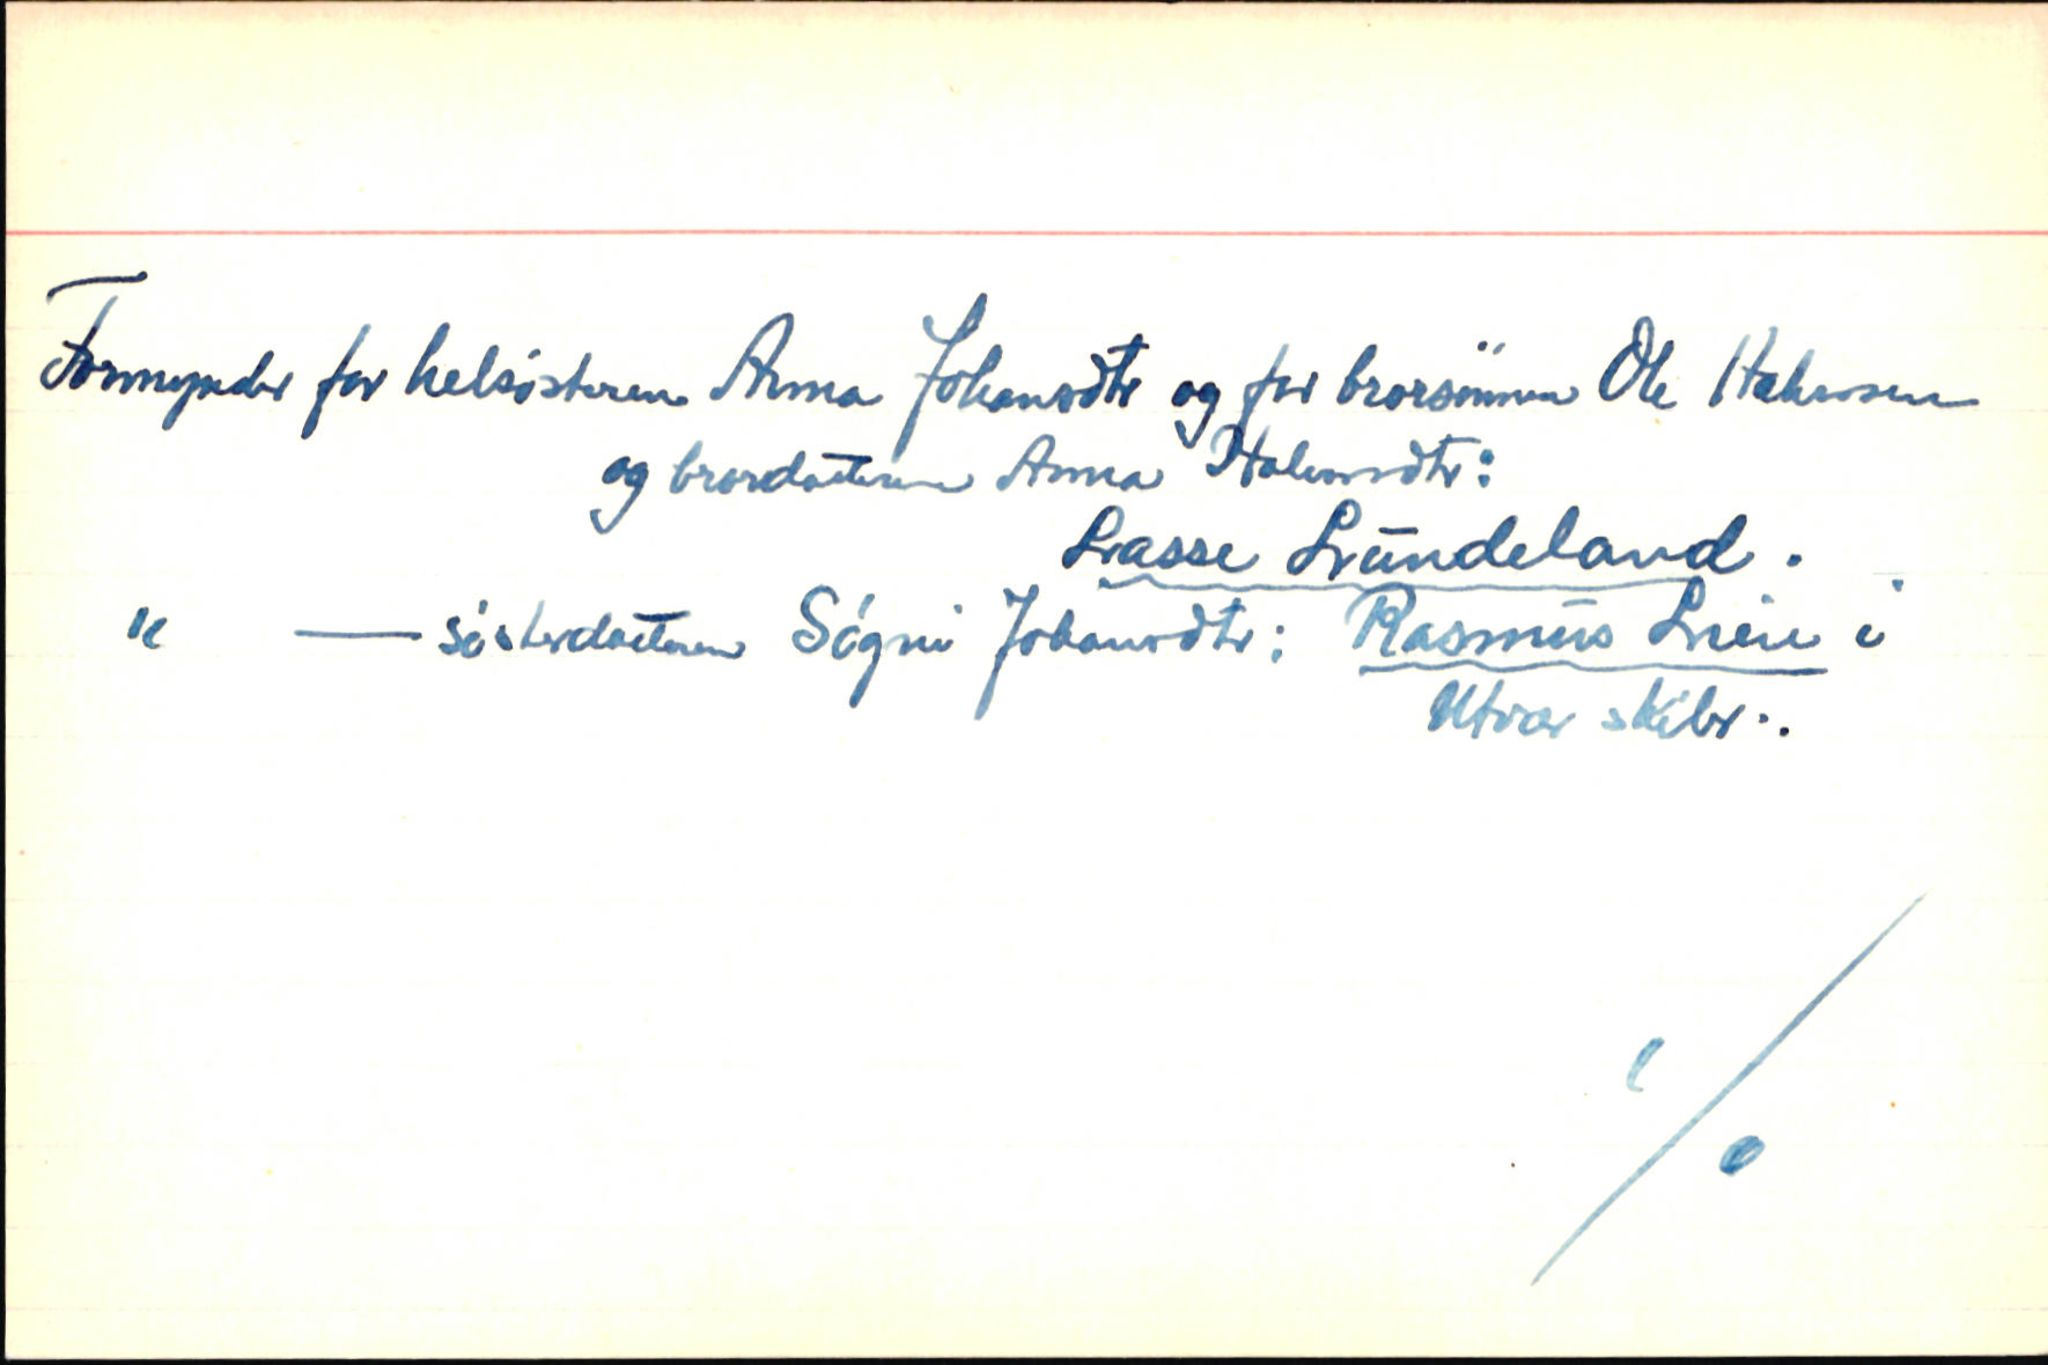 Formynder for helsösteren Anna Johansdtr og for brorsönnen Ole Hakensen
og brordatteren Anna Hakensdtr:
Lasse Lundeland.
" — sösterdatteren Sögni Johansdtr: Rasmus Leie i
Utvær skibr..